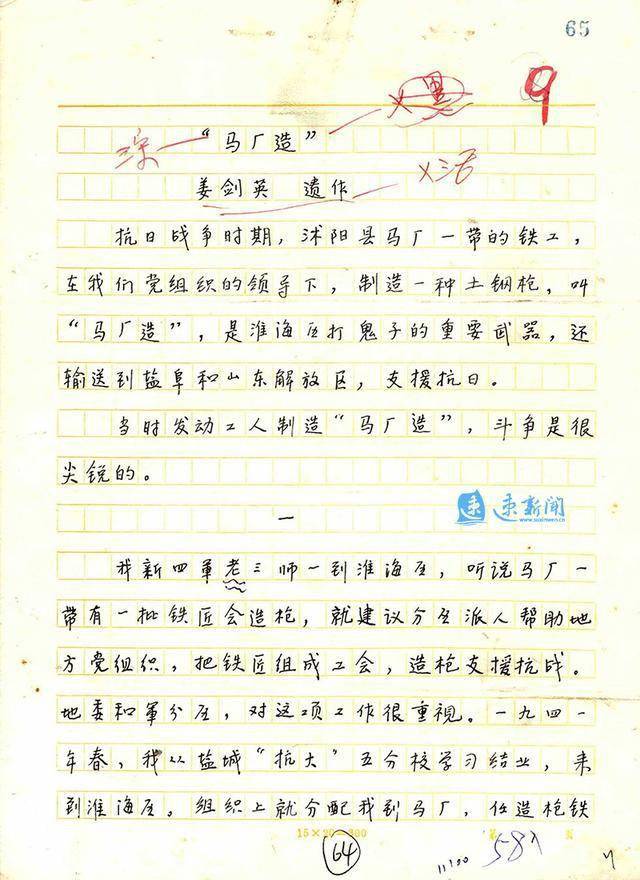 65
9
"马厂造"
姜剑英 遗作
抗日战争时期，沭阳县马厂一带的铁工，
在我们党组织的领导下，制造一种土钢枪，叫
"马厂造"，是淮海区打鬼子的重要武器，还
输送到盐阜和山东解放区，支援抗日。
当时发动工人制造"马厂造"，斗争是很
尖锐的。
速新闻
www.suxinwen.cn
一
我新四軍老三师一到淮海区，听说马厂一
带有一批铁匠会造枪，就建议分区派人帮助地
方党组织，把铁匠组成工会，造枪支援抗战。
地委和軍分区，对这项工作很重視。一九四一
年春，我从盐城"抗大"五分校学习结业，来
到淮海区。组织上就分配我到马厂，任造枪铁
15×20=300
第 页
64